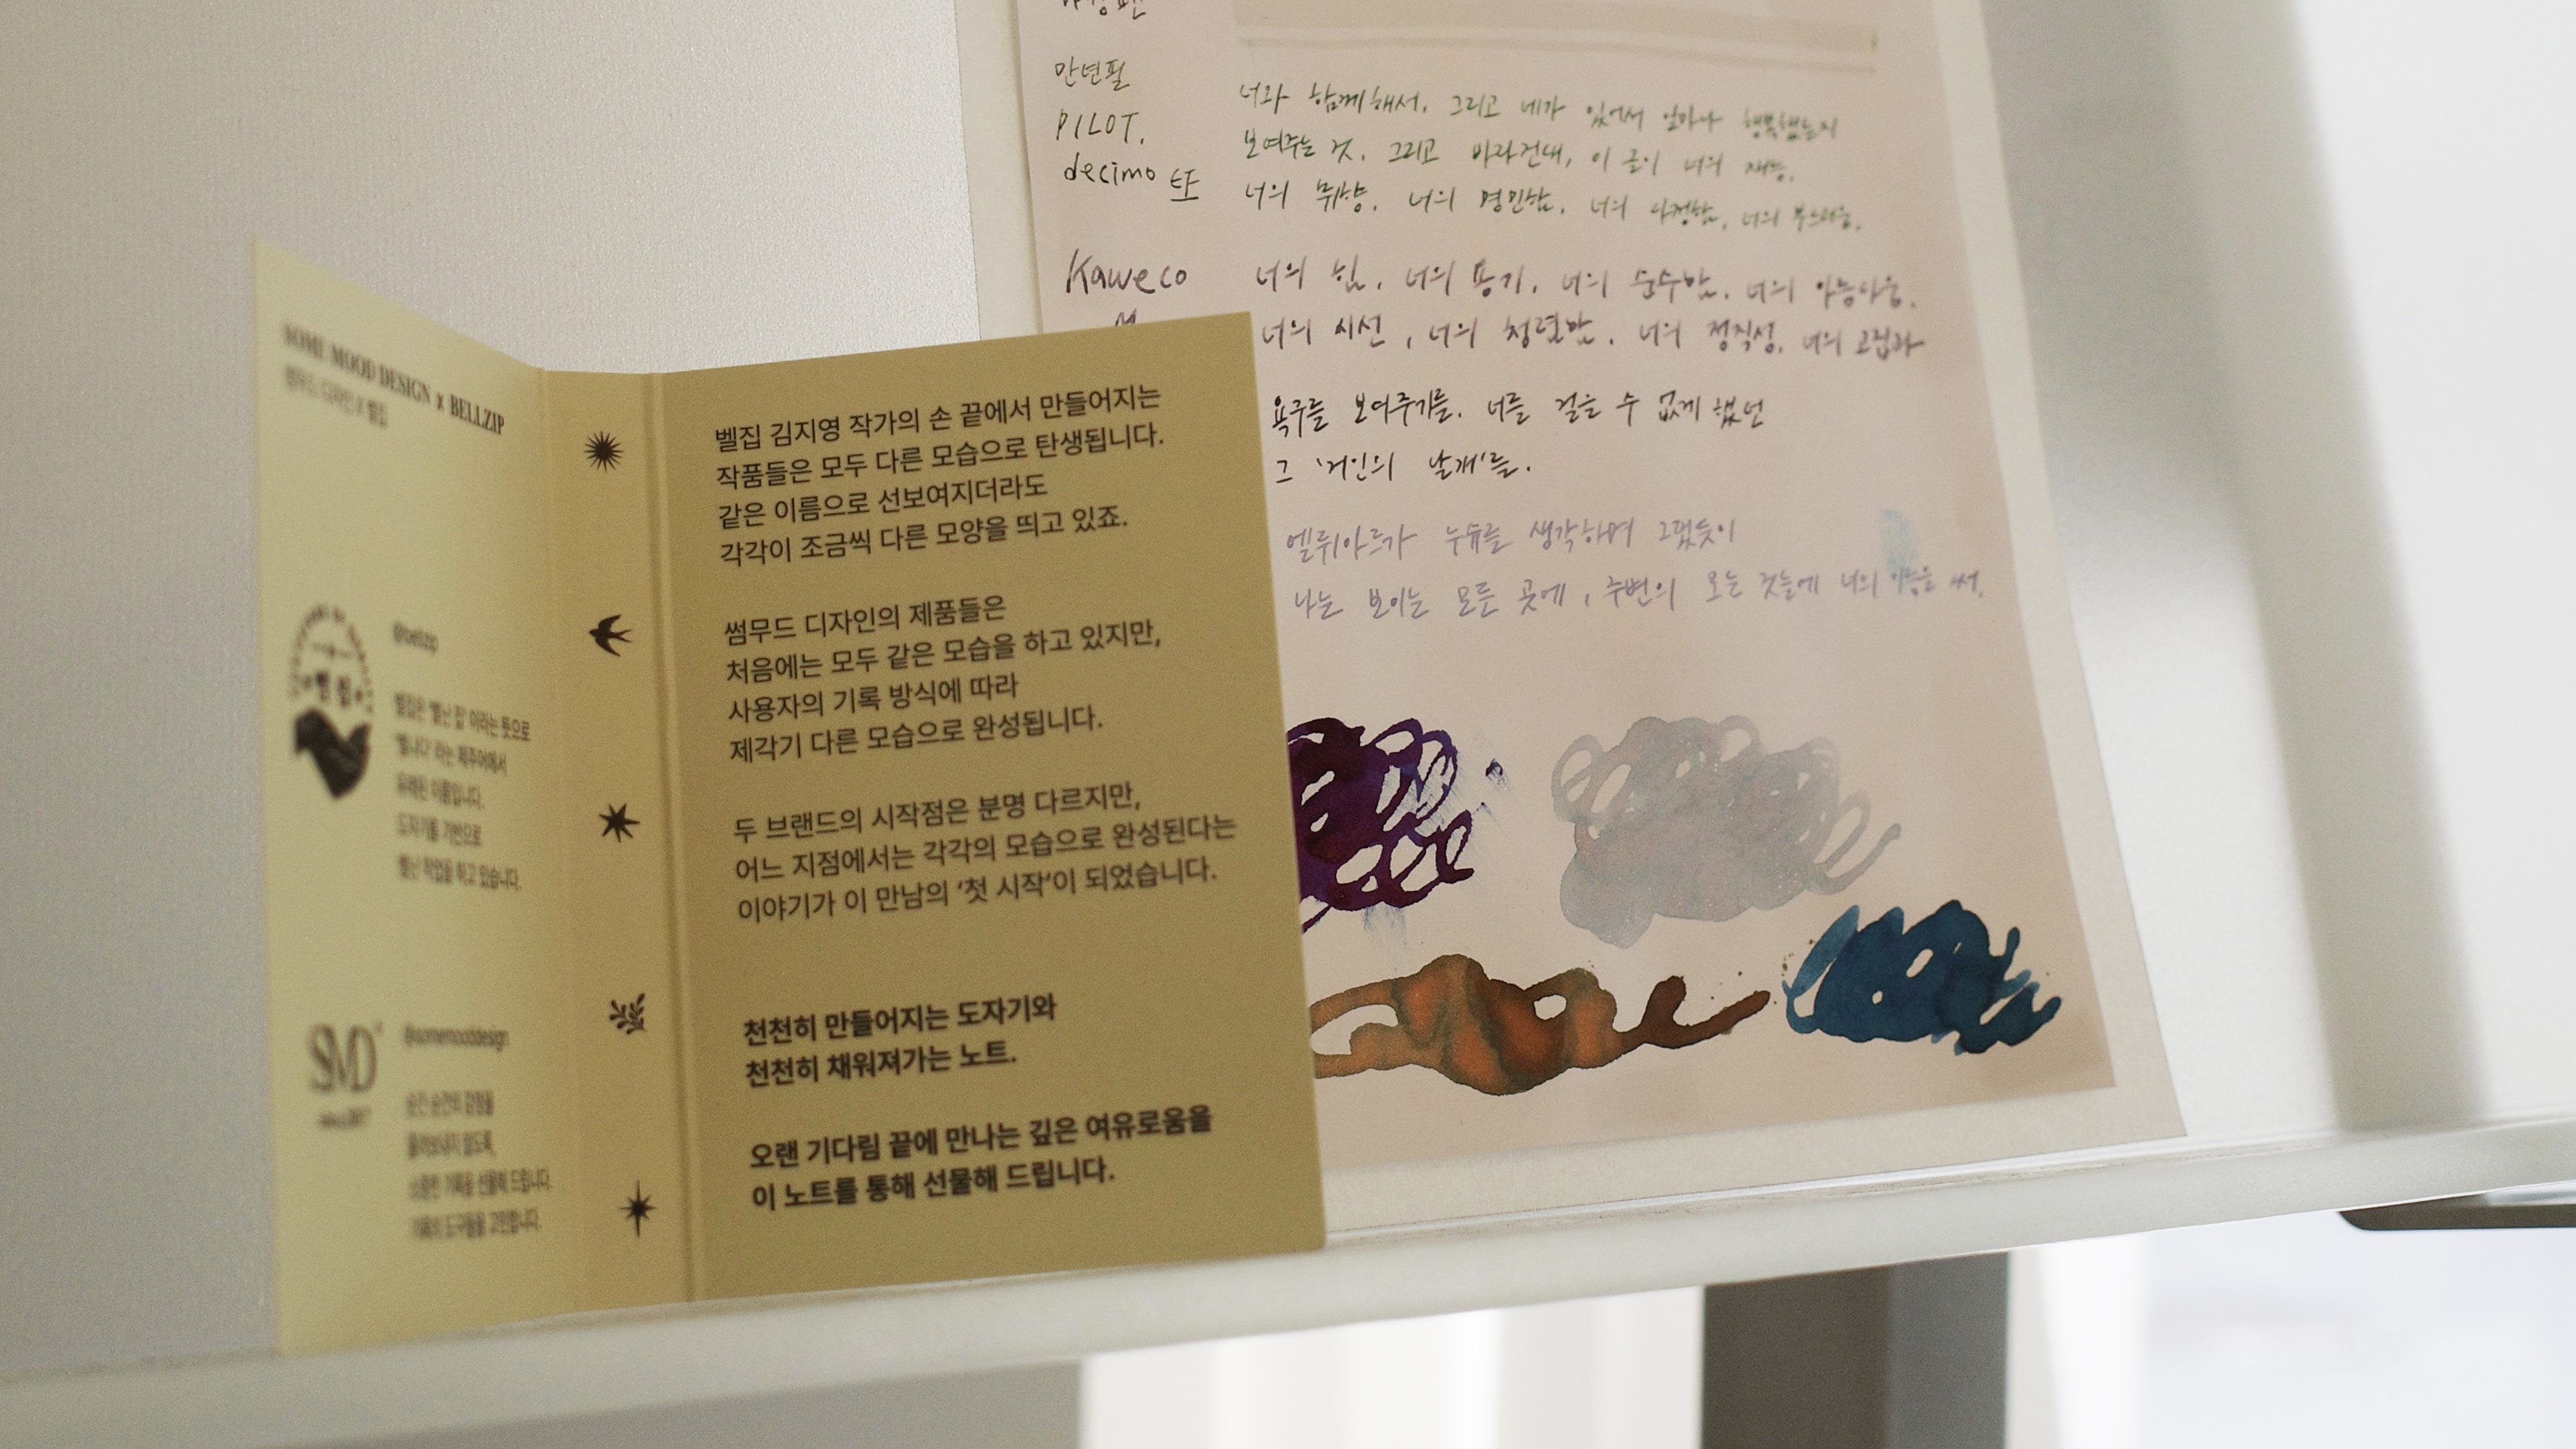 SOME MOOD DESIGN x BELLZIP
썸무드 디자인 X 벨집
@bellzip
벨집은 '벨난 집' 이라는 뜻으로
'벨나다' 라는 제주어에서
유래된 이름입니다.
도자기를 기반으로
벨난 작업을 하고 있습니다.
SMD
@somemooddesign
순간 순간의 감정을
흘려보내지 않도록,
소중한 기록을 선물해 드립니다.
기록의 도구들을 고민합니다.
벨집 김지영 작가의 손 끝에서 만들어지는
작품들은 모두 다른 모습으로 탄생됩니다.
같은 이름으로 선보여지더라도
각각이 조금씩 다른 모양을 띄고 있죠.
썸무드 디자인의 제품들은
처음에는 모두 같은 모습을 하고 있지만,
사용자의 기록 방식에 따라
제각기 다른 모습으로 완성됩니다.
두 브랜드의 시작점은 분명 다르지만,
어느 지점에서는 각각의 모습으로 완성된다는
이야기가 이 만남의 ‘첫 시작’이 되었습니다.
천천히 만들어지는 도자기와
천천히 채워져가는 노트.
오랜 기다림 끝에 만나는 깊은 여유로움을
이 노트를 통해 선물해 드립니다.
만년필
PILOT.
decimo
Kaweco
M
너와 함께해서. 그리고 네가 있어서 얼마나 행복했는지
보여주는 것. 그리고 바라건대, 이 글이 너의 재능.
너의 취향. 너의 명민함. 너의 다정함. 너의 부드러움.
너의 힘. 너의 용기. 너의 순수함. 너의 아름다움.
너의 시선, 너의 청렴함. 너의 정직성. 너의 고집과
욕구를 보여주기를. 너를 걸을 수 없게 했던
그 '거인의 날개'를.
엘뤼아르가 누슈를 생각하며 그랬듯이
나는 보이는 모든 곳에, 주변의 모든 것들에 너의 이름을 써.